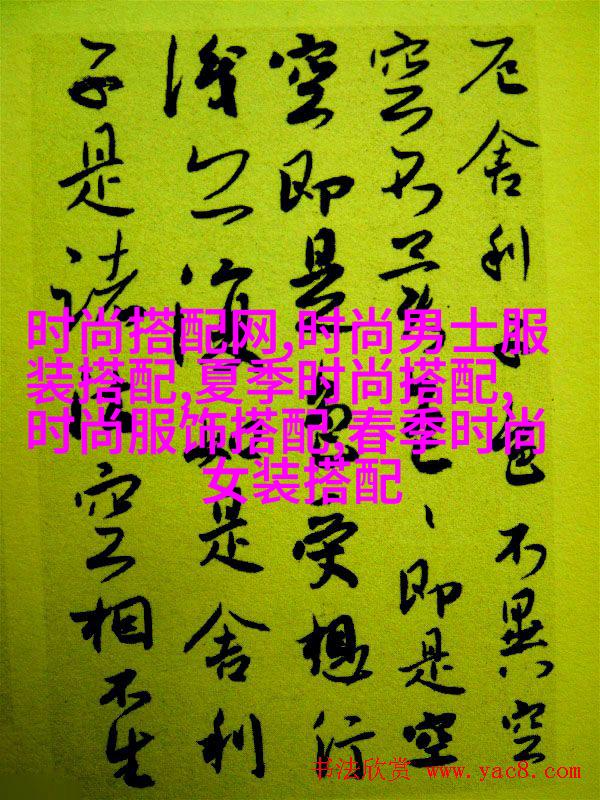 厄舍利子色不異空
空不異色、即是空
空即是色受想行
識亦復如是舍利
子是諸法空相不生
时尚搭配网,时尚男士服
装搭配,夏季时尚搭配,
时尚服饰搭配,春季时尚
女装搭配
书法欣赏 www.yac8.com